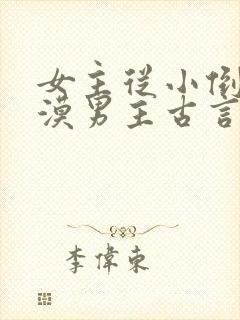 女主從小倒
漠男主古言
李偉東